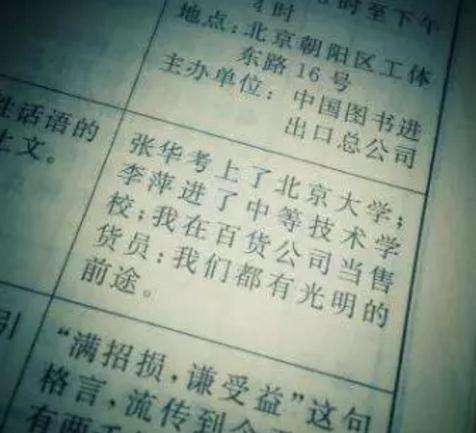 时至下午
4时
地点：北京朝阳区工体
东路16号
主办单位：中国图书进
出口总公司
性话语的
上文。
张华考上了北京大学；
李萍进了中等技术学
校；我在百货公司当售
货员：我们都有光明的
前途。
引
“满招损，谦受益”这句
格言，流传到今
有两千